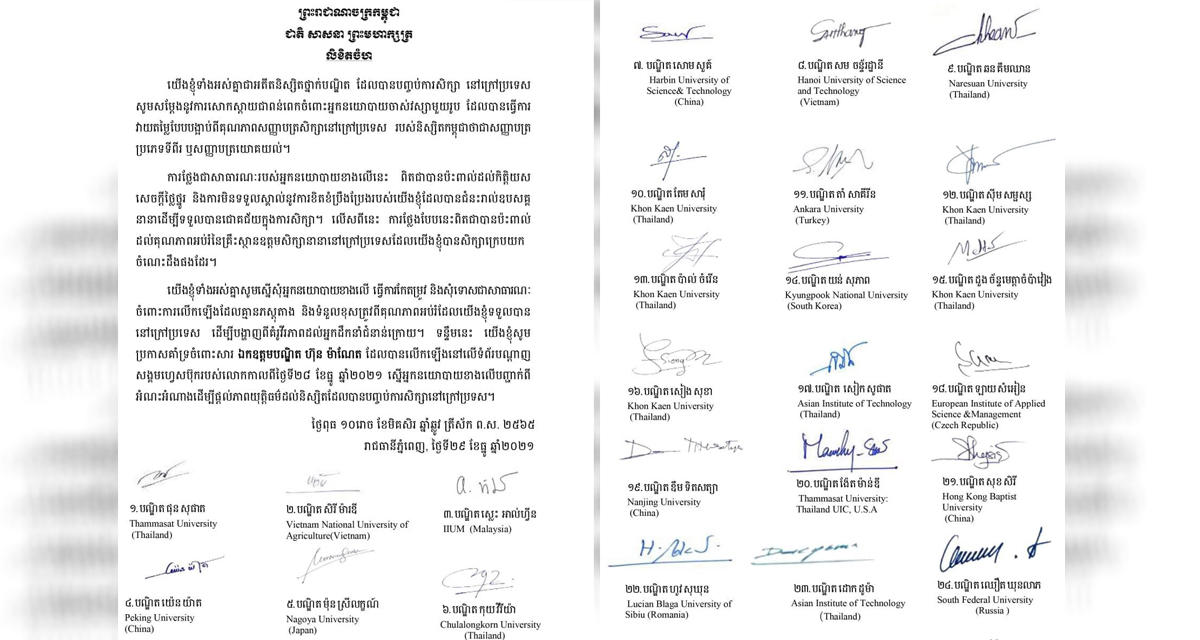 ព្រះរាជាណាចក្រកម្ពុជា
ជាតិ សាសនា ព្រះមហាក្សត្រ
លិខិតចំហ
យើងខ្ញុំទាំងអស់គ្នាជាអតីតនិស្សិតថ្នាក់បណ្ឌិត ដែលបានបញ្ចប់ការសិក្សា នៅក្រៅប្រទេស
សូមសម្តែងនូវការសោកស្តាយជាពន់ពេកចំពោះអ្នកនយោបាយចាស់វស្សាមួយរូប ដែលបានធ្វើការ
វាយតម្លៃបែបបង្អាប់ពីគុណភាពសញ្ញាបត្រសិក្សានៅក្រៅប្រទេស របស់និស្សិតកម្ពុជាថាជាសញ្ញាបត្រ
ប្រភេទទីពីរ ឬសញ្ញាបត្រយោគយល់។
ការថ្លែងជាសាធារណៈរបស់អ្នកនយោបាយខាងលើនេះ ពិតជាបានប៉ះពាល់ដល់កិត្តិយស
សេចក្តីថ្លៃថ្នូរ និងការមិនទទួលស្គាល់នូវការខិតខំប្រឹងប្រែងរបស់យើងខ្ញុំដែលបានជំនះរាល់ឧបសគ្គ
នានាដើម្បីទទួលបានជោគជ័យក្នុងការសិក្សា។ លើសពីនេះ ការថ្លែងបែបនេះពិតជាបានប៉ះពាល់
ដល់គុណភាពអប់រំនៃគ្រឹះស្ថានឧត្តមសិក្សានានានៅក្រៅប្រទេសដែលយើងខ្ញុំបានសិក្សាក្រេបយក
ចំណេះដឹងផងដែរ។
យើងខ្ញុំទាំងអស់គ្នាសូមស្នើសុំអ្នកនយោបាយខាងលើ ធ្វើការកែតម្រូវ និងសុំទោសជាសាធារណៈ
ចំពោះការលើកឡើងដែលគ្មានភស្តុតាង និងទំនួលខុសត្រូវពីគុណភាពអប់រំដែលយើងខ្ញុំទទួលបាន
នៅក្រៅប្រទេស ដើម្បីបង្ហាញពីគំរូវីរភាពដល់អ្នកដឹកនាំជំនាន់ក្រោយ។ ទន្ទឹមនេះ យើងខ្ញុំសូម
ប្រកាសគាំទ្រចំពោះសារ ឯកឧត្តមបណ្ឌិត ហ៊ុន ម៉ាណែត ដែលបានលើកឡើងនៅលើទំព័របណ្តាញ
សង្គមហ្វេសប៊ុករបស់លោកកាលពីថ្ងៃទី២៨ ខែធ្នូ ឆ្នាំ២០២១ ស្នើអ្នកនយោបាយខាងលើបញ្ជាក់ពី
អំណះអំណាងដើម្បីផ្តល់ភាពយុត្តិធម៌ដល់និស្សិតដែលបានបញ្ចប់ការសិក្សានៅក្រៅប្រទេស។
ថ្ងៃពុធ ១០រោច ខែមិគសិរ ឆ្នាំឆ្លូវ ត្រីស័ក ព.ស. ២៥៦៥
រាជធានីភ្នំពេញ, ថ្ងៃទី២៩ ខែធ្នូ ឆ្នាំ២០២១
១.បណ្ឌិត ផុន សុផាត ២.បណ្ឌិត សិរី ម៉ារឌី ៣.បណ្ឌិត ស្លេះ អាល់ហ្វីន
Thammasat University Vietnam National University of IIUM (Malaysia)
(Thailand) Agriculture(Vietnam)
៤.បណ្ឌិត យ៉េន យ៉ាត ៥.បណ្ឌិត ម៉ុន ស្រីលក្ខណ៍ ៦.បណ្ឌិត កុយ វីរីយ៉ា
Peking University Nagoya University Chulalongkorn University
(China) (Japan) (Thailand)
៧. បណ្ឌិត សោម សូត៌ ៨.បណ្ឌិត សម ចន្ទ័រដ្ឋានី ៩.បណ្ឌិត ឆនគឹមឈាន
Harbin University of Hanoi University of Science Naresuan University
Science& Technology and Technology (Thailand)
(China) (Vietnam)
១០.បណ្ឌិត កែម សារ៉ុំ ១១.បណ្ឌិត តាំ សាគីរីន ១២.បណ្ឌិត ស៊ឹម សម្ផស្ស
Khon Kaen University Ankara University Khon Kaen University
(Thailand) (Turkey) (Thailand)
១៣.បណ្ឌិត ប៉ាល់ ចំរើន ១៤.បណ្ឌិត យន់ សុភាព ១៥.បណ្ឌិត ដួង ច័ន្ទមេត្តាចំប៉ាវៀង
Khon Kaen University Kyungpook National University Khon Kaen University
(Thailand) (South Korea) (Thailand)
១៦.បណ្ឌិត សៀង សុខា ១៧.បណ្ឌិត សៀក សុផាត ១៨.បណ្ឌិត ឡាយ សំអៀន
Khon Kaen University Asian Institute of Technology European Institute of Applied
(Thailand) (Thailand) Science &Management
(Czech Republic)
១៩.បណ្ឌិត ឌឹម ទិតសត្យា ២០.បណ្ឌិត ម៉ែត ម៉ាន់ឌី ២១.បណ្ឌិត សុខ សិរី
Nanjing University Thammasat University: Hong Kong Baptist
(China) Thailand UIC, U.S.A University
(China)
២២.បណ្ឌិត ហូវ សុឃុន ២៣.បណ្ឌិត ដោក ដូម៉ា ២៤.បណ្ឌិត ឈឿត ឃុនលាភ
Lucian Blaga University of Asian Institute of Technology South Federal University
Sibiu (Romania) (Thailand) (Russia )